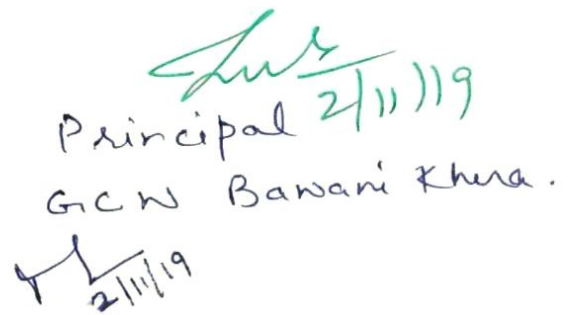 2/11/19
Principal
GCW Bawani Khera.
2/11/19